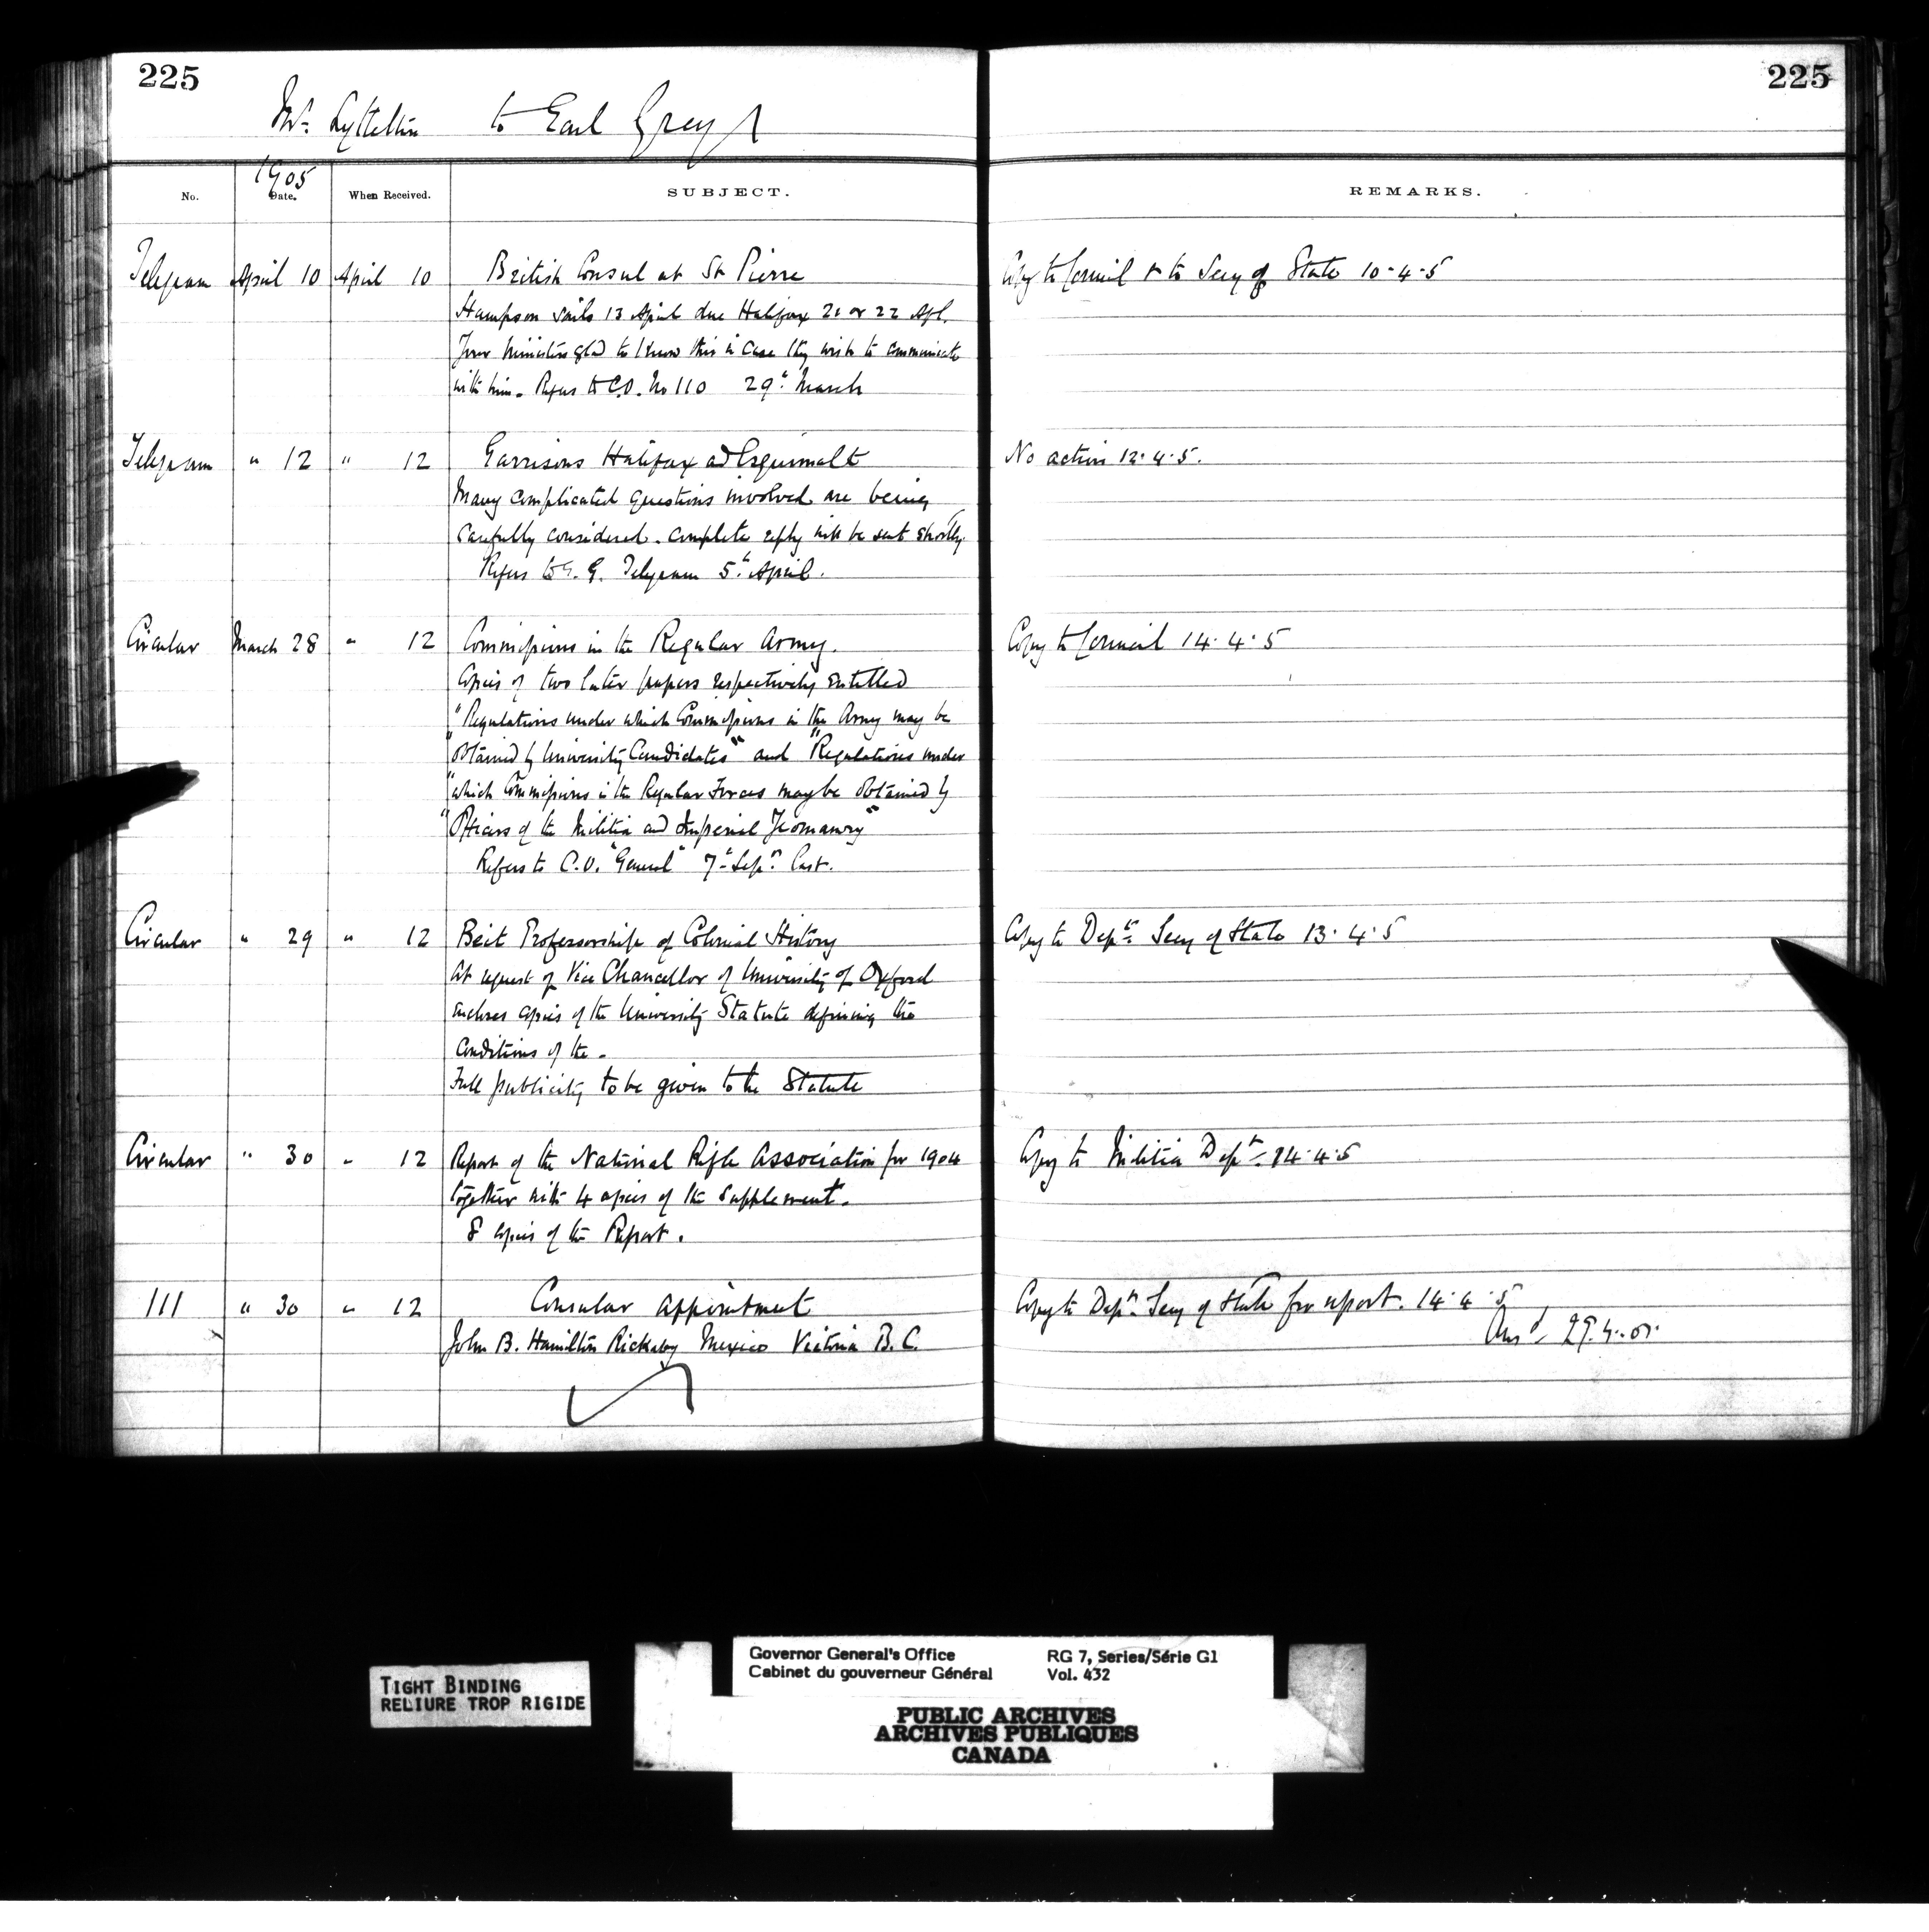 225
225
Mr. Lyttelton to Earl Grey
1905
No. Date. When Received. SUBJECT. REMARKS.
Telegram April 10 April 10 British Consul at St Pierre Copy to Council & to Secy of State 10-4-5
Hampson sails 13 April due Halifax 21 or 22 Apl.
Your Ministers glad to know this in case they wish to communicate
with him. Refers to C.O. No 110 29th March
Telegram " 12 " 12 Garrisons Halifax ad Esquimalt No action 12.4.5.
Many complicated questions involved are being
carefully considered. complete reply will be sent shortly.
Refers to G. G. Telegram 5th April.
Circular March 28 " 12 Commissions in the Regular Army. Copy to Council 14.4.5
Copies of two later papers respectively entitled
"Regulations under which Commissions in the Army may be
"obtained by University Candidates" and "Regulations under
"which Commissions in the Regular Forces may be obtained by
"Officers of the Militia and Imperial Yeomanry"
Refers to C.O. "General" 7th Sepr. last.
Circular " 29 " 12 Beit Professorship of Colonial History Copy to Dept. Secy of State 13.4.5
At request of Vice Chancellor of University of Oxford
encloses copies of the University Statute defining the
Conditions of the -
Full publicity to be given to the Statute
Circular " 30 " 12 Report of the National Rifle Association for 1904 Copy to Militia Dept. 14.4.5
together with 4 copies of the Supplement.
8 copies of the Report.
111 " 30 " 12 Consular appointment Copy to Dept. Secy of State for report. 14.4.5
John B. Hamilton Rickaby Mexico Victoria B.C. Ansd. 29.4.05.
TIGHT BINDING
RELIURE TROP RIGIDE
Governor General's Office RG 7, Series/Série G1
Cabinet du gouverneur Général Vol. 432
PUBLIC ARCHIVES
ARCHIVES PUBLIQUES
CANADA